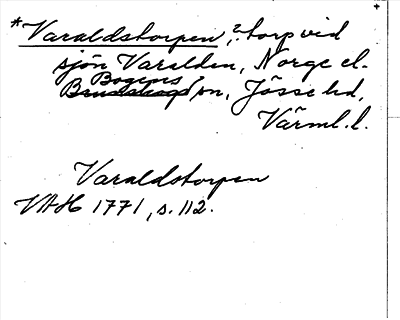 *Varaldstorpen, ? torp vid
sjön Varalden, Norge el.
Bogens
Brunskogs sn, Jösse hd,
Värml. l.
Varaldstorpen
VAH 1771, s. 112.